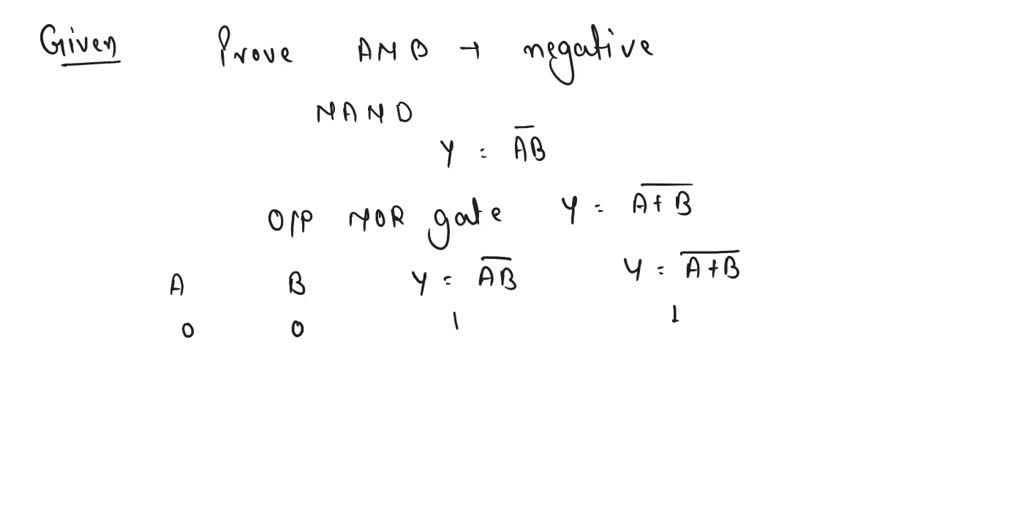 Given Prove AND → negative
NAND
Y = A̅B̅
Opp NOR gate Y = A̅+̅B̅
A B Y = A̅B̅ Y = A̅+̅B̅
0 0 1 1